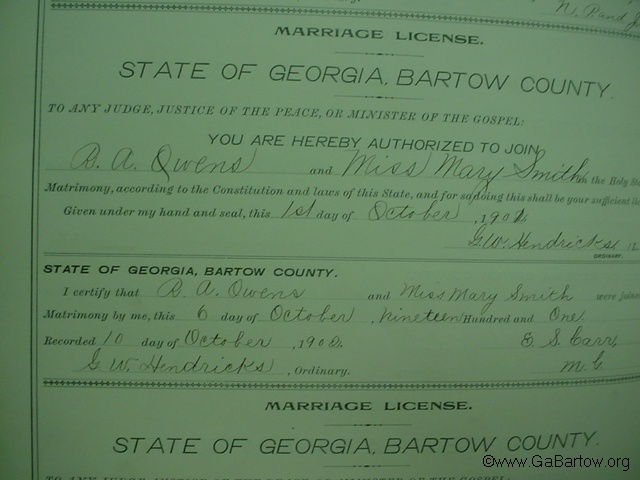 N. P. and J.
MARRIAGE LICENSE.
STATE OF GEORGIA, BARTOW COUNTY.
TO ANY JUDGE, JUSTICE OF THE PEACE, OR MINISTER OF THE GOSPEL:
YOU ARE HEREBY AUTHORIZED TO JOIN
B. A. Owens and Miss Mary Smith in the Holy
Matrimony, according to the Constitution and laws of this State, and for so doing this shall be your sufficient
Given under my hand and seal, this 1st day of October, 1901
G. W. Hendricks
ORDINARY.
STATE OF GEORGIA, BARTOW COUNTY.
I certify that B. A. Owens and Miss Mary Smith were joined
Matrimony by me, this 6 day of October, nineteen Hundred and One.
Recorded 10 day of October, 190 E. S. Carr,
G. W. Hendricks, Ordinary. M. G
MARRIAGE LICENSE.
STATE OF GEORGIA, BARTOW COUNTY.
©www.GaBartow.org